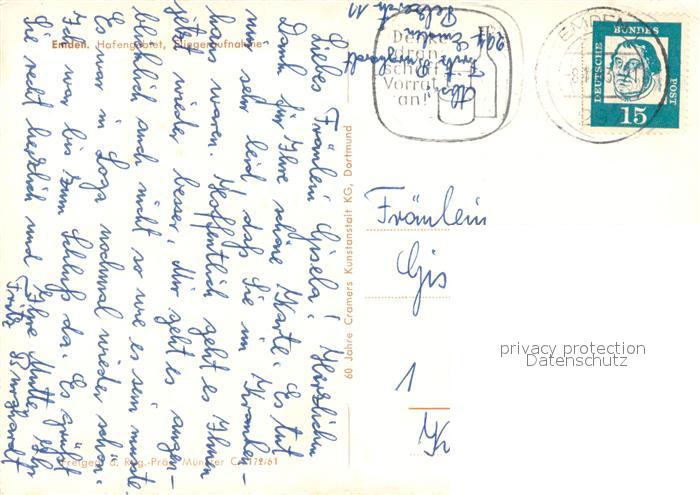 Emden. Hafengebiet, Fliegeraufnahme
Liebes Fräulein Gisela! Herzlichen
Dank für Ihre schöne Karte. Es tut
mir sehr leid daß Sie im Kranken-
haus waren. Hoffentlich geht es Ihnen
jetzt wieder besser. Mir geht es augen-
blicklich auch nicht so wie es sein müsste.
Es war in Loga nochmal wieder schön.
Ich war bis zum Schluß da. Es grüßt
Sie recht herzlich und Ihre Mutter Ihr
Fritz Burghardt
Freigeg. d. Reg.-Präs. Münster CA 172/61
60 Jahre Cramers Kunstanstalt KG, Dortmund
Abs.
Fritz Burghardt
297 Emden
Denke
dran
schaff
Vorrat
an!"
EMDEN
DEUTSCHE BUNDESPOST
15
Fräulein
Gis
1
K
privacy protection
Datenschutz